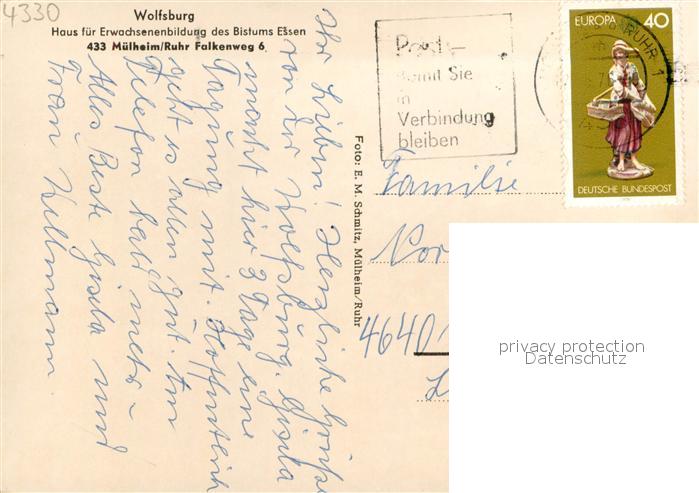 4330
Wolfsburg
Haus für Erwachsenenbildung des Bistums Essen
433 Mülheim/Ruhr Falkenweg 6
Ihr Lieben! Herzliche Grüße
von der Wolfsburg. Gisela
macht hier 3 Tage eine
Tagung mit. Hoffentlich
geht es allen gut. Am
Telefon bald mehr.
Alles Beste Gisela und
Frau
Foto: E. M. Schmitz, Mülheim/Ruhr
Post-
damit Sie
in
Verbindung
bleiben
RUHR 1
EUROPA 40
DEUTSCHE BUNDESPOST
Familie
4640
privacy protection
Datenschutz